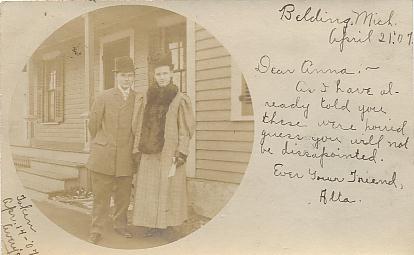 Belding, Mich.
April 21, '07.
Dear Anna:~
As I have al-
ready told you
these were poired
guess you will not
be dissapointed.
Ever Your Friend,
Atta.
Taken
Apr. 14-'07